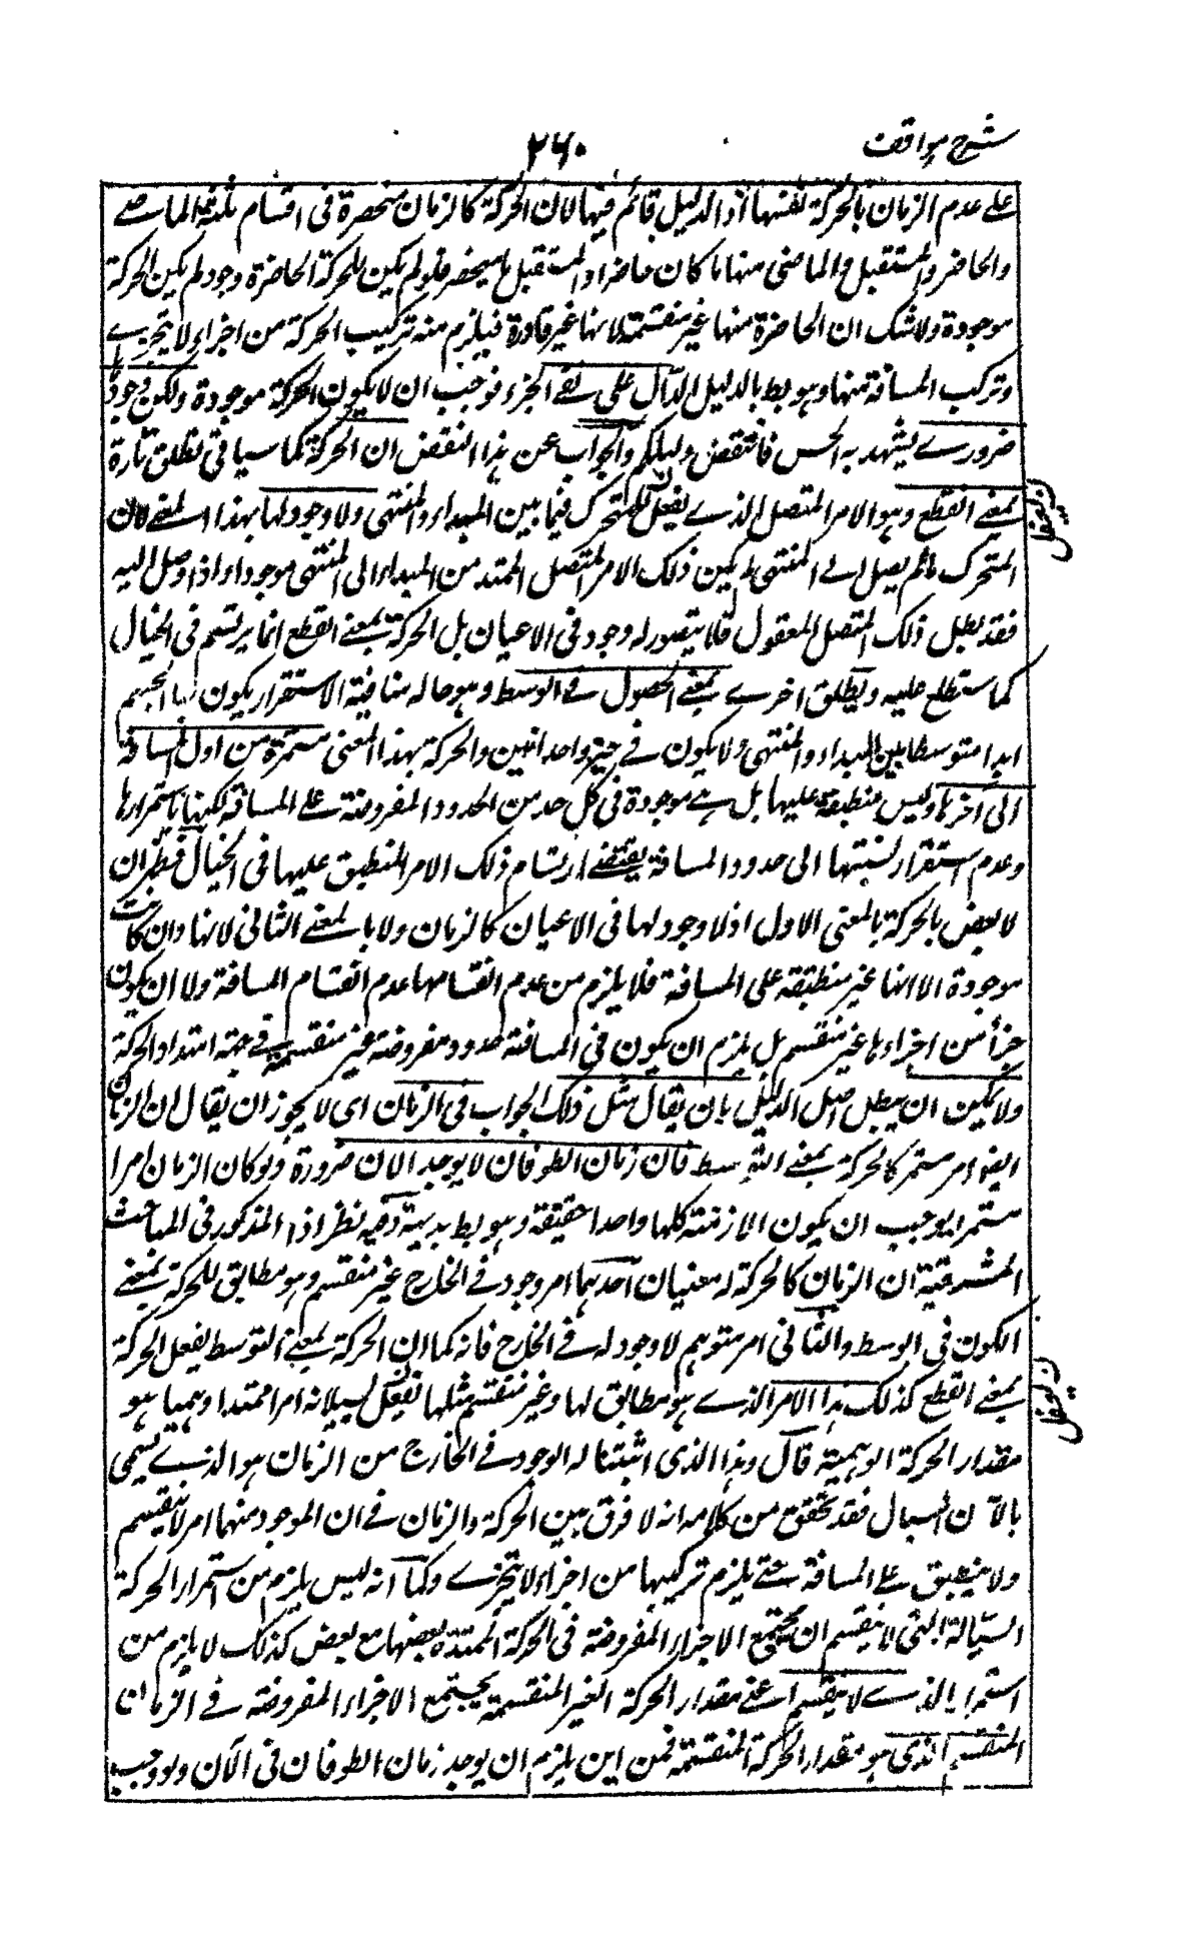 شرح مواقف
۲۶۰
على عدم الزمان بالحركة نفسها اذ الدليل قائم فيها لان الحركة كالزمان منحصرة فى اقسام ثلثة الماضى
والحاضر والمستقبل والماضى منها ما كان حاضرا والمستقبل ما سيحضر فلو لم يكن للحركة الحاضرة وجود لم يكن الحركة
موجودة ولا شك ان الحاضرة منها غير منقسمة لانها غير قارة فيلزم منه تركيب الحركة من اجزاء لا يتجزى
وتركب المسافة منها وهو بط بالدليل الدال على نفى الجزء فوجب ان لا يكون الحركة موجودة ولكن وجودها
ضرورى يشهد به الحس فانتقض دليلكم والجواب عن هذا النقض ان الحركة كما سياتى تطلق تارة
بمعنى القطع وهو الامر المتصل الذى يعقل للمتحرك فيما بين المبداء والمنتهى ولا وجود لها بهذا المعنى لان
المتحرك مالم يصل الى المنتهى لم يكن ذلك الامر المتصل الممتد من المبداء الى المنتهى موجودا واذا وصل اليه
فقد بطل ذلك المتصل المعقول فلا يتصور له وجود فى الاعيان بل الحركة بمعنى القطع انما يرتسم فى الخيال
كما ستطلع عليه ويطلق اخرى بمعنى الحصول فى الوسط وهو حالة منافية الاستقرار يكون بها الجسم
ابدا متوسطا بين المبداء والمنتهى ولا يكون فى حيز واحد انين والحركة بهذا المعنى مستمرة من اول المسافة
الى آخرها وليس منطبقة عليها بل هى موجودة فى كل حد من الحدود المفروضة على المسافة لكنها باستمرارها
وعدم استقرار نسبتها الى حدود المسافة يقتضى ارتسام ذلك الامر المنطبق عليها فى الخيال فظهر ان
لا نعض بالحركة بالمعنى الاول اذ لا وجود لها فى الاعيان كالزمان ولا بالمعنى الثانى لانها وان كانت
موجودة الا انها غير منطبقة على المسافة فلا يلزم من عدم انقسامها عدم انقسام المسافة ولا ان يكون
جزأ من اجزاءها غير منقسم بل يلزم ان يكون فى المسافة حدود مفروضة غير منقسمة فى جهة امتداد الحركة
ولا يمكن ان يبطل اصل الدليل بان يقال مثل ذلك الجواب فى الزمان اى لا يجوز ان يقال ان الزمان
ايضا امر مستمر كالحركة بمعنى التوسط فان زمان الطوفان لا يوجد الان ضرورة ولو كان الزمان امرا
مستمرا يوجب ان يكون الازمنة كلها واحدا حقيقة وهو بط بديهة وفيه نظر اذ المذكور فى المباحث
المشرقية ان الزمان كالحركة له معنيان احدهما امر موجود فى الخارج غير منقسم وهو مطابق للحركة بمعنى
الكون فى الوسط والثانى امر متوهم لا وجود له فى الخارج فانه كما ان الحركة بمعنى التوسط يفعل الحركة
بمعنى القطع كذلك هذا الامر الذى هو مطابق لها وغير منقسم مثلها يفعل بسيلانه امرا ممتدا وهميا هو
مقدار الحركة الوهمية قال وهذا الذى اثبتنا له الوجود فى الخارج من الزمان هو الذى يسمى
بالآن السيال فقد تحقق من كلامه انه لا فرق بين الحركة والزمان فى ان الموجود منهما امر لا ينقسم
ولا ينطبق على المسافة حتى يلزم تركيبها من اجزاء لا يتجزى وكما انه ليس يلزم من استمرار الحركة
السيالة التى لا ينقسم ان يجتمع الاجزاء المفروضة فى الحركة الممتدة بعضها مع بعض كذلك لا يلزم من
استمرار الذى لا ينقسم اعنى مقدار الحركة الغير المنقسمة يجتمع الاجزاء المفروضة فى الزمان
المنقسم الذى هو مقدار الحركة المنقسمة فمن اين يلزم ان يوجد زمان الطوفان فى الآن ولو وجب